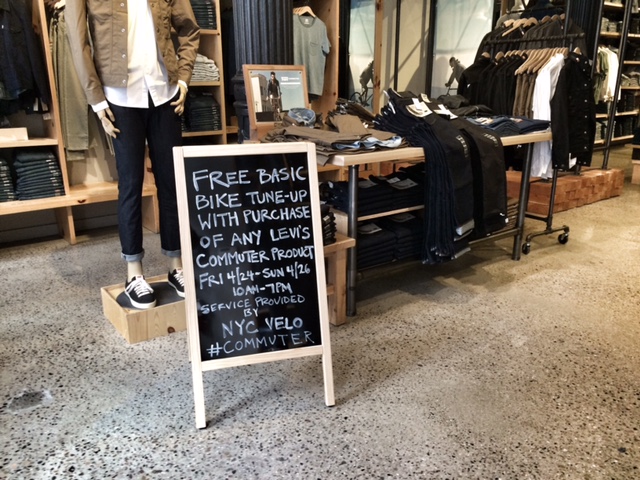 FREE BASIC
BIKE TUNE-UP
WITH PURCHASE
OF ANY LEVI'S
COMMUTER PRODUCT
FRI 4/24-SUN 4/26
10AM-7PM
SERVICE PROVIDED
BY
NYC VELO
#COMMUTER